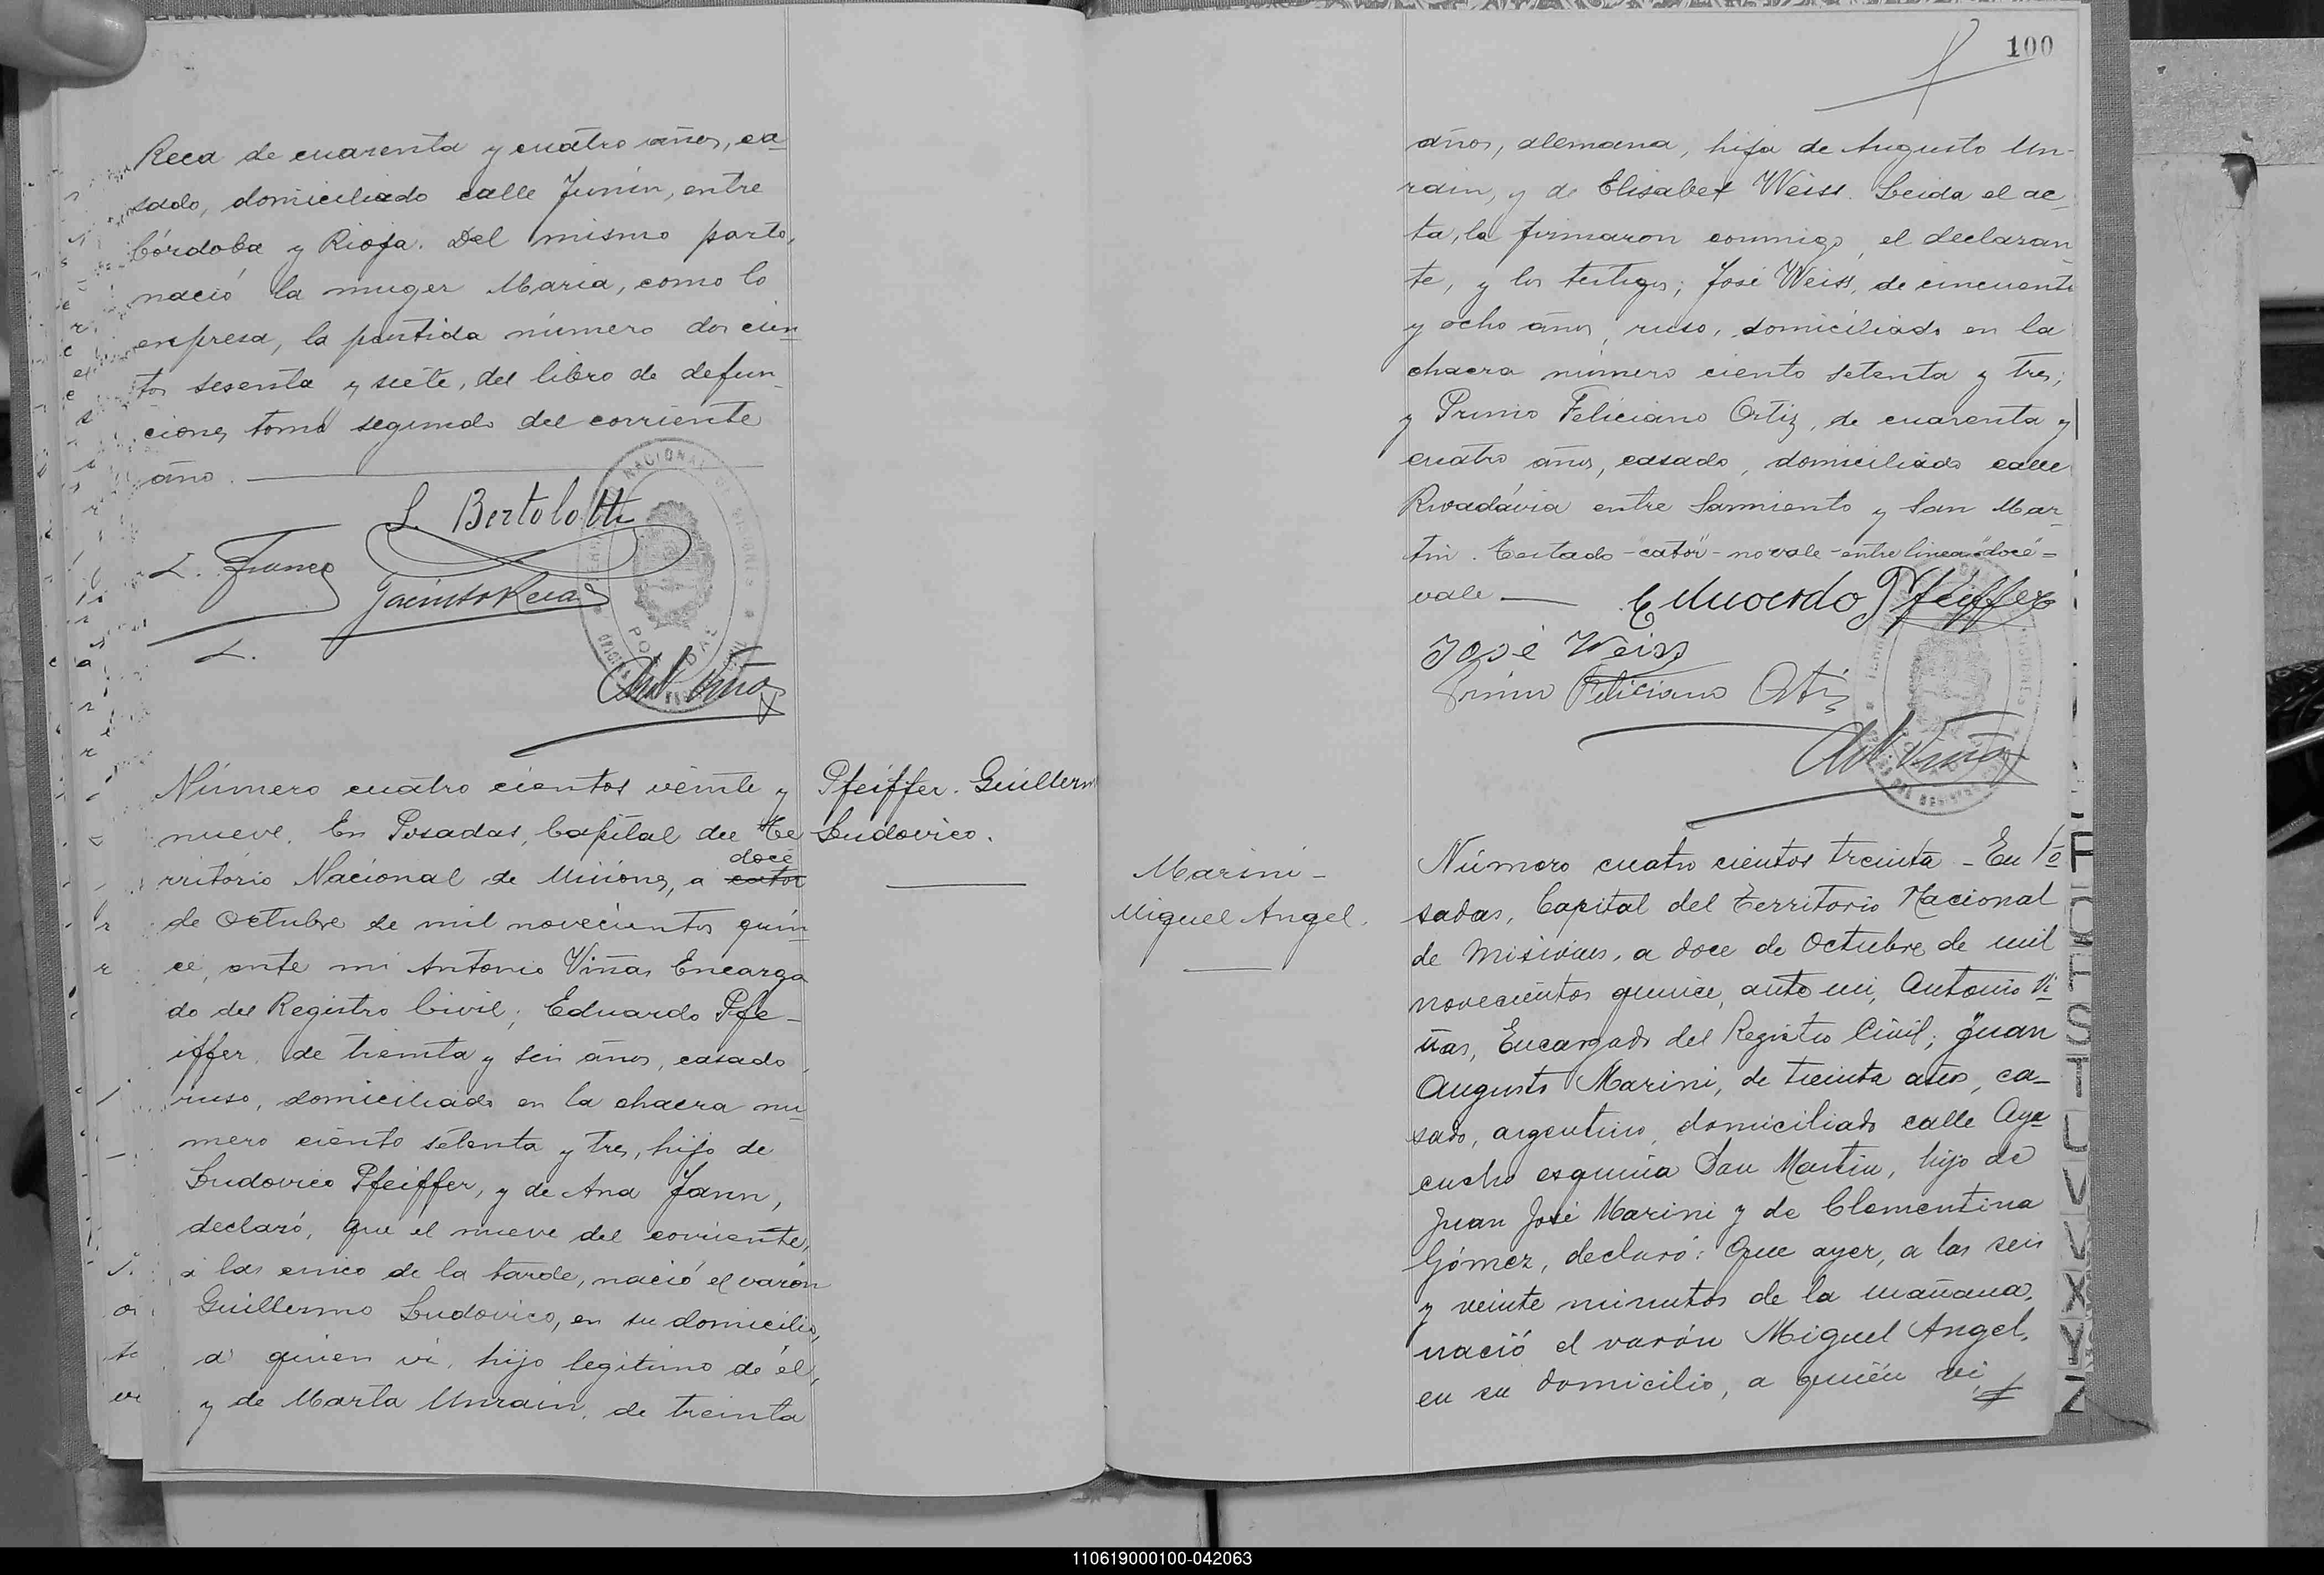 Reca de cuarenta y cuatro años, ca-
sado, domiciliado calle Junin, entre
Córdoba y Rioja. Del mismo parto,
nació la muger Maria, como lo
expresa, la partida número dos cien-
tos sesenta y siete, del libro de defun-
ciones, tomo segundo del corriente
año.
S. Bertolotti
L. Franco
Jacinto Reca
L.
Ant Viñas
TERRITORIO NACIONAL DE MISIONES
POSADAS
Número cuatro cientos veinte y
nueve. En Posadas, Capital del Te-
doce
rritório Nacional de Misiones, a cator
de Octubre de mil novecientos quin-
ce, ante mi Antonio Viñas Encarga
do del Registro Civil; Eduardo Pfe-
iffer, de treinta y seis años, casado,
ruso, domiciliado en la chacra nu-
mero ciento setenta y tres, hijo de
Ludovico Pfeiffer, y de Ana Jann,
declaró, que el nueve del corriente,
a las cinco de la tarde, nació el varón
Guillermo Ludovico, en su domicilio,
a quien vi, hijo legitimo de él,
y de Marta Unrain, de treinta
Pfeiffer. Guillerm
Ludovico.
100
años, alemana, hija de Augusto Un-
rain, y de Elisabet Weiss. Leida el ac-
ta, la firmaron conmigo, el declaran
te, y los testigos; José Weiss, de cincuenta
y ocho años, ruso, domiciliado en la
chacra número ciento setenta y tres;
y Primo Feliciano Ortiz, de cuarenta y
cuatro años, casado, domiciliado calle
Rivadávia entre Sarmiento y San Mar-
tin. Testado -"cator"- no vale - entre lineas "doce" =
vale
Eduardo Pfeiffer
José Weiss
Primo Feliciano Ortiz
Ant Viñas
Marini -
Miguel Angel.
Número cuatro cientos treinta - En Po
sadas, Capital del Territorio Nacional
de Misiones, a doce de Octubre de mil
novecientos quince, ante mi, Antonio Vi-
ñas, Encargado del Registro Civil; Juan
Augusto Marini, de treinta años, ca-
sado, argentino, domiciliado calle Aya
cucho esquina San Martin, hijo de
Juan José Marini y de Clementina
Gómez, declaró: Que ayer, a las seis
y veinte minutos de la mañana,
nació el varón Miguel Angel,
en su domicilio, a quién vi,
F
Q
T
S
I
U
V
V
X
Y
Z
110619000100-042063